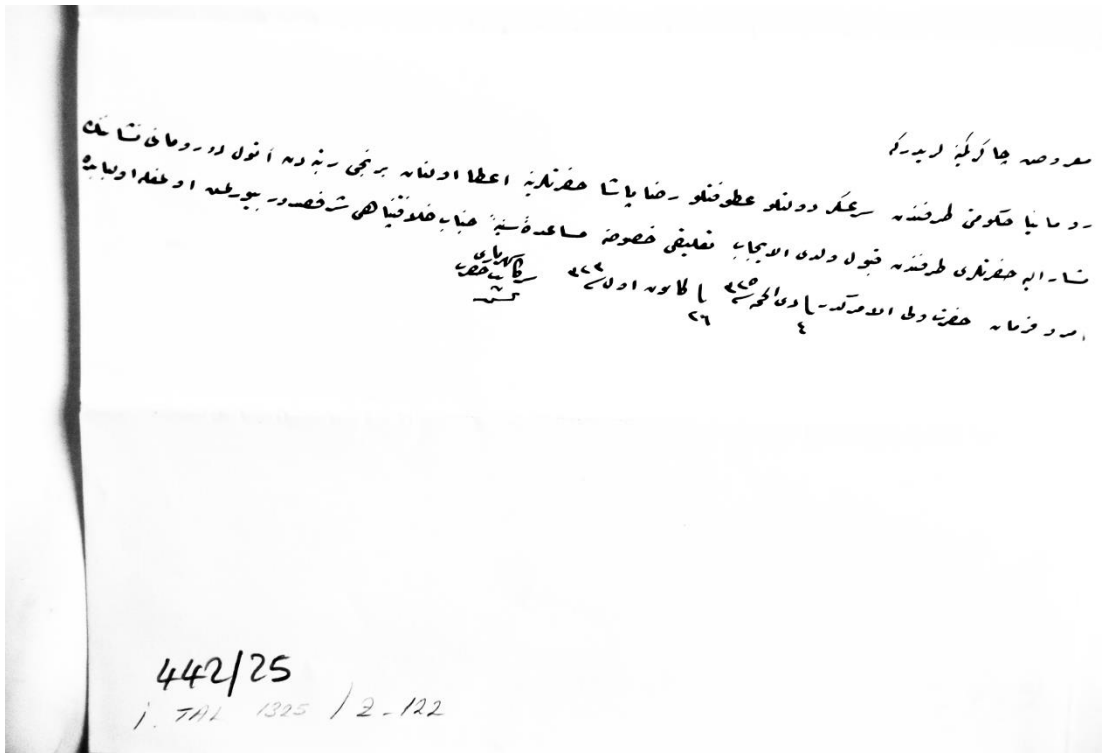 معروض چاكر كمينه لريدركه
رومانيا حكومتى طرفندن سرعسكر دولتلو عطوفتلو رضا پاشا حضرتلرينه اعطا اولنان برنجى رتبه دن اتول دو رومانى نشاننك
مشار اليه حضرتلرى طرفندن قبول ولدى الايجاب تعليقى خصوصنه مساعدۀ سنيۀ جناب خلافتپناهى شرفصدور بيورلمش اولمغله اولبابده
امر و فرمان حضرت ولى الامركدر ٤ ذى الحجه ٣٢٥ ٢٦ كانون اول ٣٢٣
سركاتب حضرت شهريارى
442/25
İ. TAL 1325 / Z-122